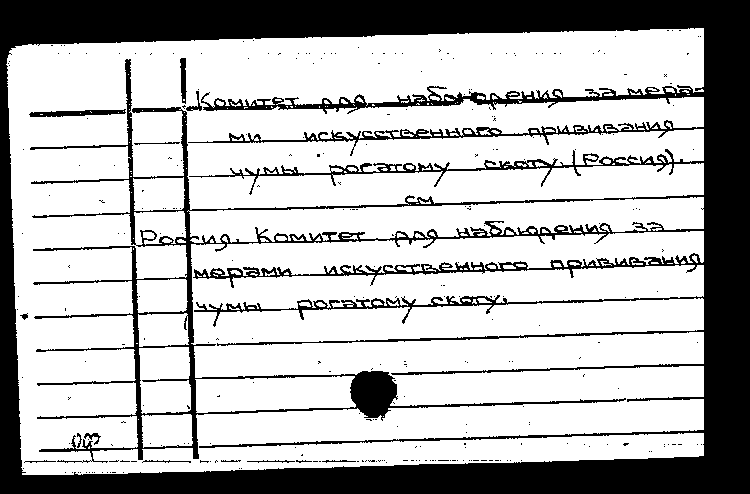 Комитет для наблюдения за мера-
ми искусственного прививания
чумы рогатому скоту. (Россия).
см
Россия. Комитет для наблюдения за
мерами искусственного прививания
чумы рогатому скоту.